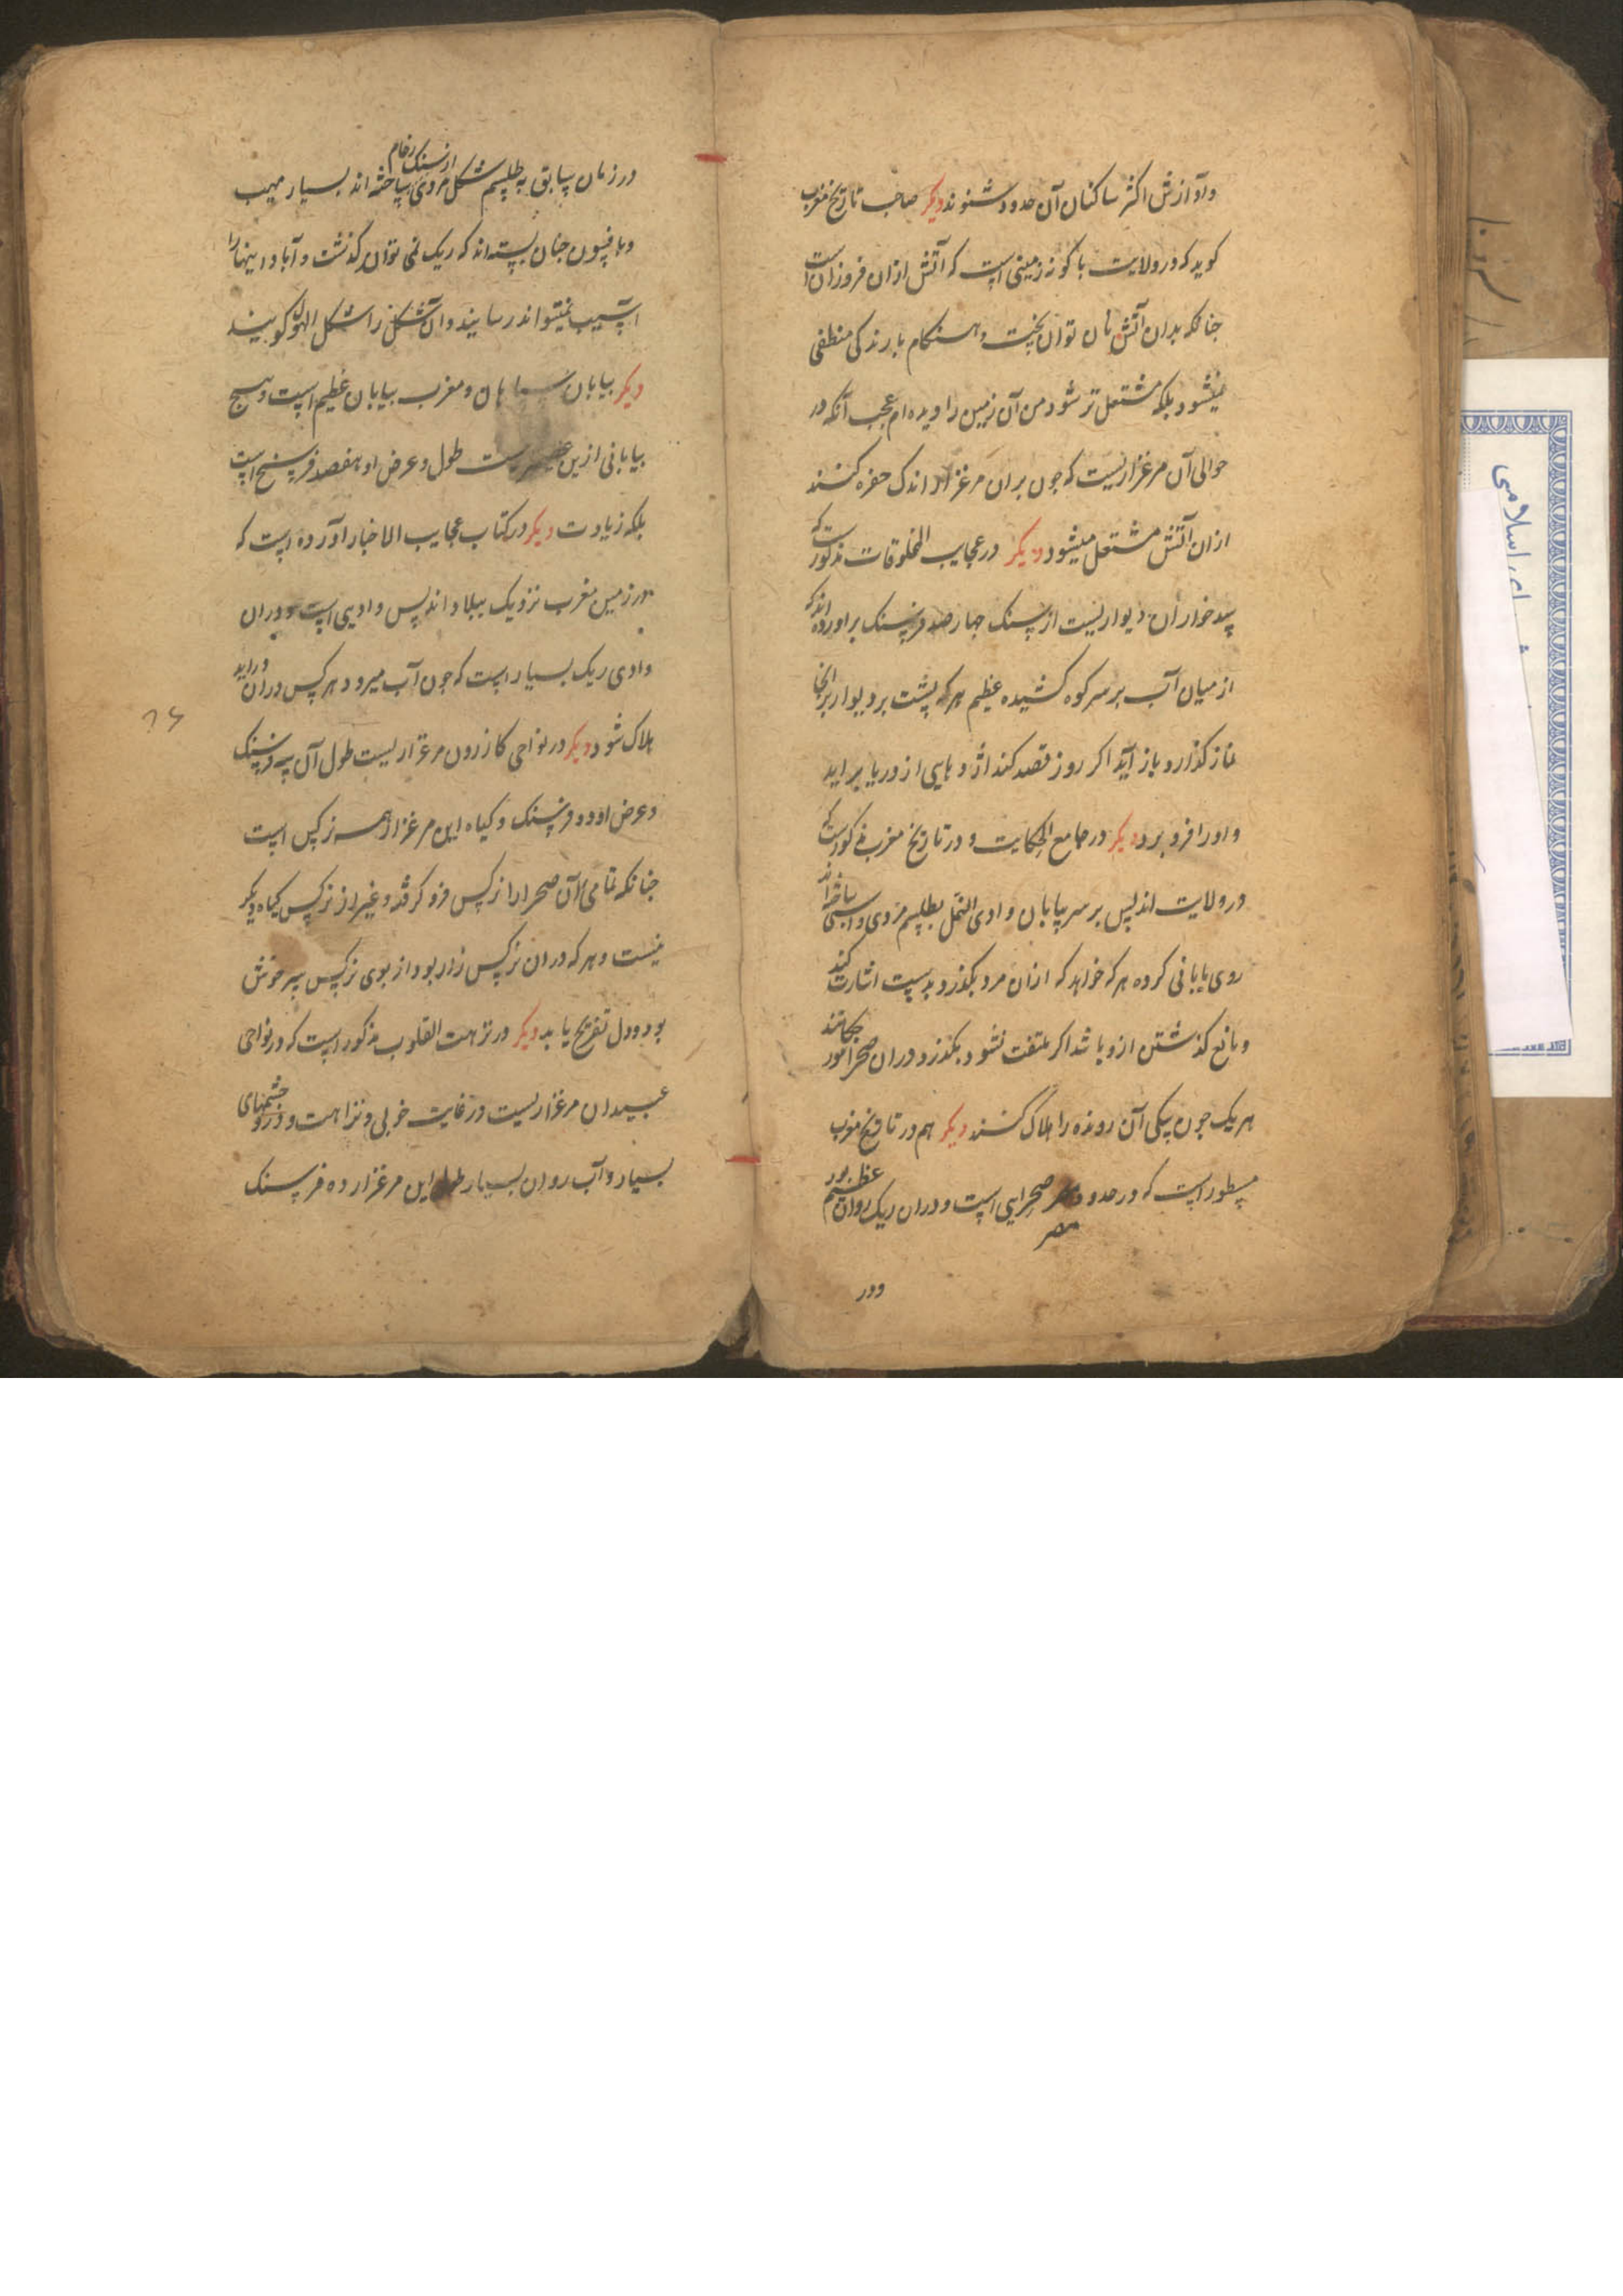 وآوازش اکثر ساکنان آن حدود شنوند دیکر صاحب تاریخ مغرب
کوید که در ولایت باکو نه زمینی است که آتش ازان فروزان است
جنانکه بدان آتش نان توان بخت و هنکام بارندکی منطفی
نمیشود بلکه مشتعل تر شود من آن زمین را دیده ام عجب آنکه در
حوالی آن مرغزاریست که جون بران مرغزار اندک حفره کنند
ازان آتش مشتعل میشود دیکر در عجایب المخلوقات مذکورست که
دیواریست از سنک جهارصد فرسنک براورده اند که
از میان آب بر سر کوه کشیده عظیم هرکه بشت بر دیوار برانجا
نماز کذارد باز آید اکر روز قصد کند اژدهایی از دریا براید
و اورا فرو برد دیکر در جامع الحکایت و در تاریخ مغرب مذکورست که
در ولایت اندلس بر سر بیابان وادی النمل بطلسم مردی و اسبی ساخته اند
روی بیابانی کرده هرکه خواهد که ازان مرد بکذرد بدست اشارت کند
و مانع کذشتن ازو باشد اکر ملتفت نشود و بکذرد دران صحرا مورجکانند
هر یک جون سکی آن رونده را هلاک کنند دیکر هم در تاریخ مغرب
مسطور است که در حدود مصر صحرایی است و دران ریک روان عظیم بود
مصر
ودر
در زمان سابق به طلسم شکل مردی از سنک رخام ساخته اند بسیار مهیب
و بافسون جنان بسته اند که ریک نمی توان کذشت و آبادانیها را
آسیب نمیتواند رسانید و آن شکل را شکل ابوالهول کویند
دیکر بیابان و مغرب بیابان عظیم است و هیج
بیابانی ازین طول و عرض او هفصد فرسنخ است
بلکه زیادت دیکر در کتاب عجایب الاخبار آورده است که
در زمین مغرب نزدیک ببلاد اندلس وادیی است و دران
وادی ریک بسیار است که جون آب میرود هر کس دران دراید
هلاک شود دیکر در نواحی کازرون مرغزاریست طول آن سه فرسنک
و عرض او دو فرسنک و کیاه این مرغزار همه نرکس است
جنانکه تمامی آن صحرا را نرکس فرو کرفته و غیر از نرکس کیاه دیکر
نیست و هرکه دران نرکس زار بود از بوی نرکس سرخوش
بود و دل تفریح یابد دیکر در نزهت القلوب مذکور است که در نواحی
مرغزاریست در غایت خوبی و نزاهت و درو جشمهای
بسیار و آب روان بسیار طول این مرغزار ده فرسنک
۲۶